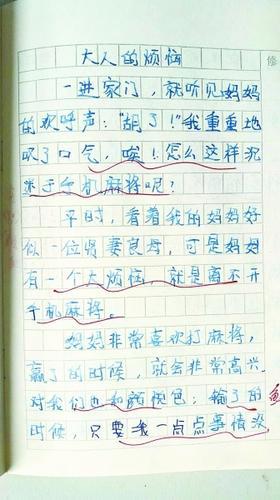 大人的烦恼
一进家门，就听见妈妈
的欢呼声："胡了！"我重重地
叹了口气，唉！怎么这样沉
迷于手机麻将呢？
平时，看着我的妈妈好
似一位贤妻良母，可是妈妈
有一个大烦恼，就是离不开
手机麻将。
妈妈非常喜欢打麻将，
赢了的时候，就会非常高兴，
对我们也和颜悦色；输了的
时候，只要我一点点事情没
修